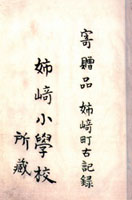 寄贈品 姉﨑町古記録
姉﨑小學校
所藏